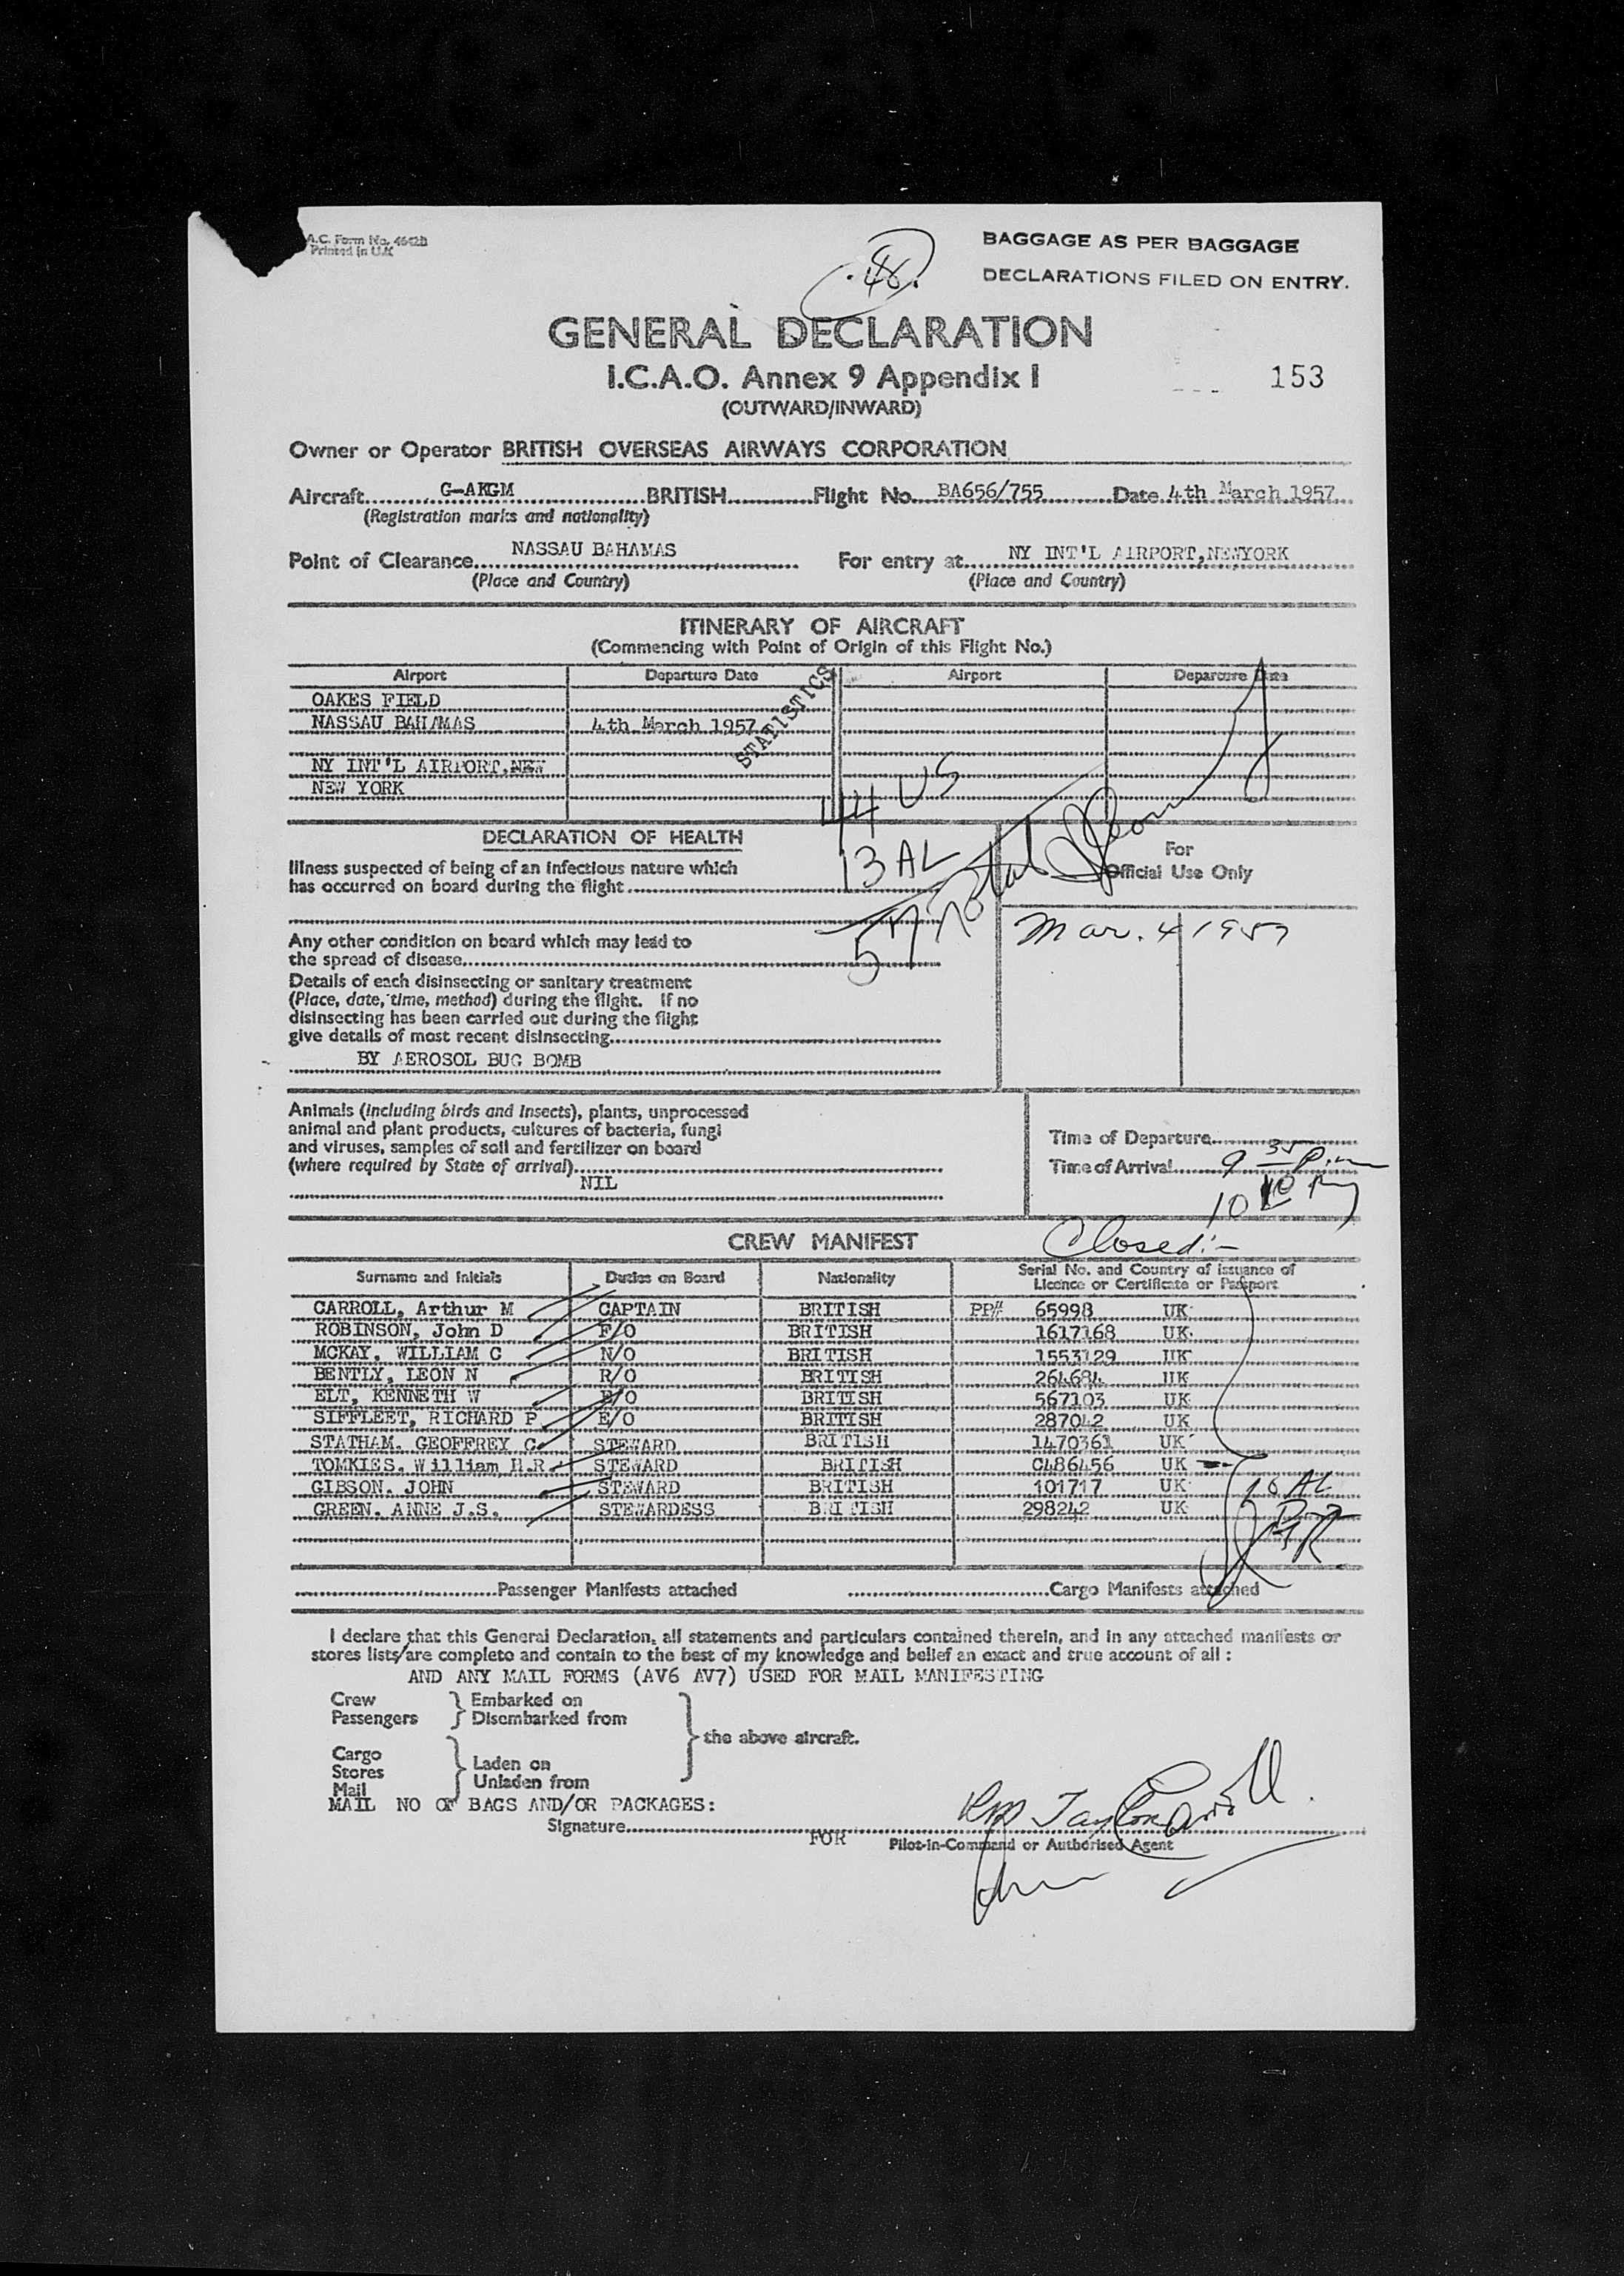 A.C. Form No. 4642B
Printed in U.K
46
BAGGAGE AS PER BAGGAGE
DECLARATIONS FILED ON ENTRY.
GENERAL DECLARATION
I.C.A.O. Annex 9 Appendix I
153
(OUTWARD/INWARD)
Owner or Operator BRITISH OVERSEAS AIRWAYS CORPORATION
Aircraft G-AKGM BRITISH Flight No. BA656/755 Date 4th March 1957
(Registration marks and nationality)
Point of Clearance NASSAU BAHAMAS For entry at NY INT'L AIRPORT,NEWYORK
(Place and Country) (Place and Country)
ITINERARY OF AIRCRAFT
(Commencing with Point of Origin of this Flight No.)
Airport Departure Date Airport Departure Date
OAKES FIELD
NASSAU BAHAMAS 4th March 1957
STATISTICS
NY INT'L AIRPORT,NEW
NEW YORK
44 US
13 AL
57 Total
DECLARATION OF HEALTH
Illness suspected of being of an infectious nature which
has occurred on board during the flight
For
Official Use Only
Mar. 4 1957
Any other condition on board which may lead to
the spread of disease
Details of each disinsecting or sanitary treatment
(Place, date, time, method) during the flight. If no
disinsecting has been carried out during the flight
give details of most recent disinsecting
BY AEROSOL BUG BOMB
Animals (including birds and insects), plants, unprocessed
animal and plant products, cultures of bacteria, fungi
and viruses, samples of soil and fertilizer on board
(where required by State of arrival)
NIL
Time of Departure
Time of Arrival 9 35 p.m
10 10 Pm
Closed:-
CREW MANIFEST
Surname and Initials Duties on Board Nationality Serial No. and Country of issuance of
Licence or Certificate or Passport
CARROLL, Arthur M CAPTAIN BRITISH PP# 65998 UK
ROBINSON, John D F/O BRITISH 1617168 UK
MCKAY, WILLIAM C N/O BRITISH 1553129 UK
BENTLY, LEON N R/O BRITISH 264684 UK
ELT, KENNETH W E/O BRITISH 567103 UK
SIFFLEET, RICHARD P E/O BRITISH 287042 UK
STATHAM, GEOFFREY C STEWARD BRITISH 1470361 UK
TOMKIES, William H.R STEWARD BRITISH C486456 UK
GIBSON, JOHN STEWARD BRITISH 101717 UK
GREEN, ANNE J.S. STEWARDESS BRITISH 298242 UK
10 AL
Passenger Manifests attached Cargo Manifests attached
I declare that this General Declaration, all statements and particulars contained therein, and in any attached manifests or
stores lists/are complete and contain to the best of my knowledge and belief an exact and true account of all :
AND ANY MAIL FORMS (AV6 AV7) USED FOR MAIL MANIFESTING
Crew
Passengers
Embarked on
Disembarked from
the above aircraft.
Cargo
Stores
Mail
Laden on
Unladen from
MAIL NO OF BAGS AND/OR PACKAGES:
Signature
FOR Pilot-in-Command or Authorised Agent